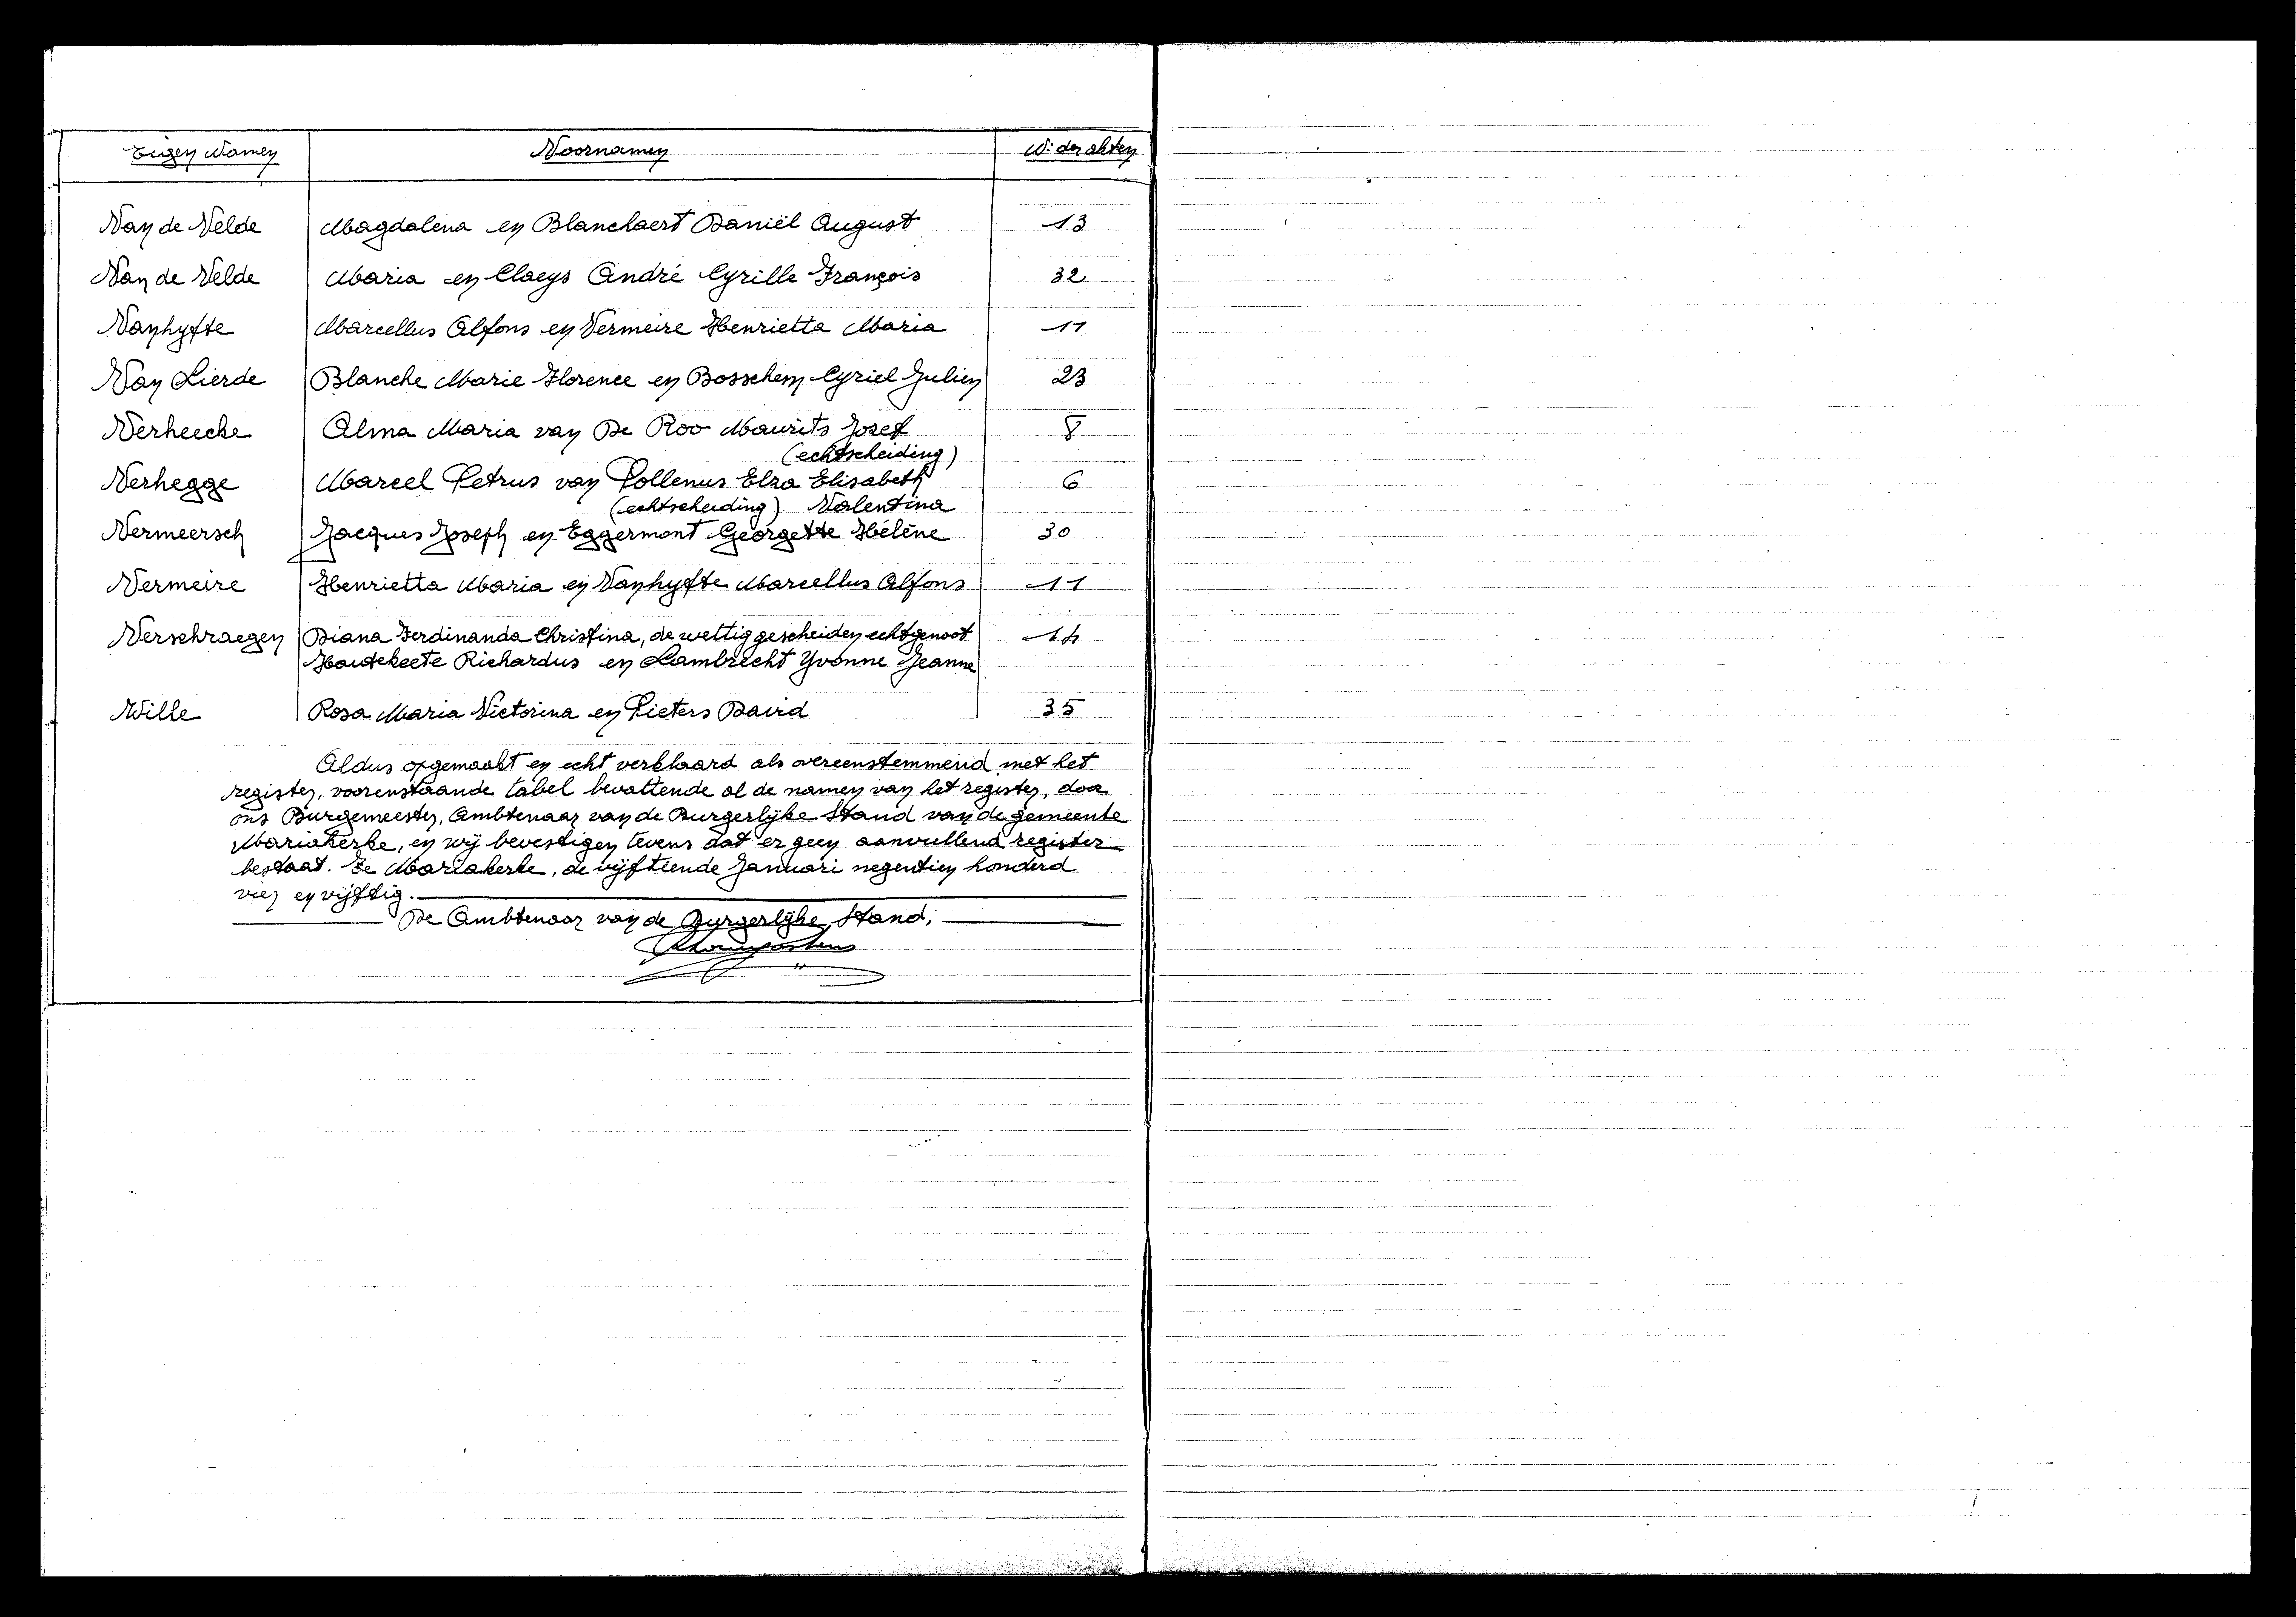 Eigen Namen Voornamen Nr der akten
Van de Velde Magdalena en Blanckaert Daniël August 13
Van de Velde Maria en Claeys André Cyrille François 32
Vanhyfte Marcellus Alfons en Vermeire Henrietta Maria 11
Van Lierde Blanche Marie Florence en Bosschem Cyriel Julien 23
Verheecke Alma Maria van De Roo Maurits Jozef 8
(echtscheiding)
Verhegge Marcel Petrus van Pollenus Elza Elisabeth 6
(echtscheiding) Valentina
Vermeersch Jacques Joseph en Eggermont Georgette Hélène 30
Vermeire Henrietta Maria en Vanhyfte Marcellus Alfons 11
Verschraegen Diana Ferdinanda Christina, de wettig gescheiden echtgenoot 14
Houtekeete Richardus en Lambrecht Yvonne Jeanne
Wille Rosa Maria Victorina en Pieters David 35
Aldus opgemaakt en echt verklaard als overeenstemmend met het
register, voorenstaande tabel bevattende al de namen van het register, door
ons Burgemeester, Ambtenaar van de Burgerlijke Stand van de gemeente
Mariakerke, en wij bevestigen tevens dat er geen aanvullend register
bestaat. Te Mariakerke, de vijftiende Januari negentien honderd
vier en vijftig.
De Ambtenaar van de Burgerlijke Stand,